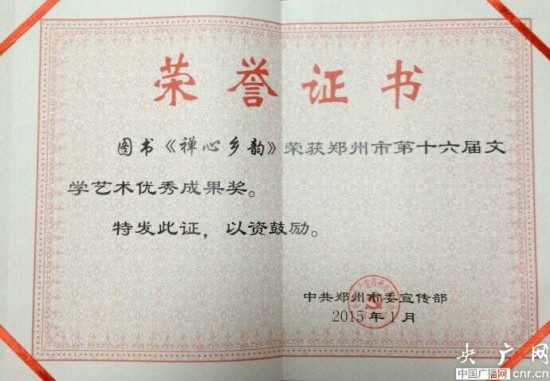 荣誉证书
图书《禅心乡韵》荣获郑州市第十六届文
学艺术优秀成果奖。
特发此证，以资鼓励。
中共郑州市委宣传部
2015年1月
央广网
中国广播网 cnr.cn